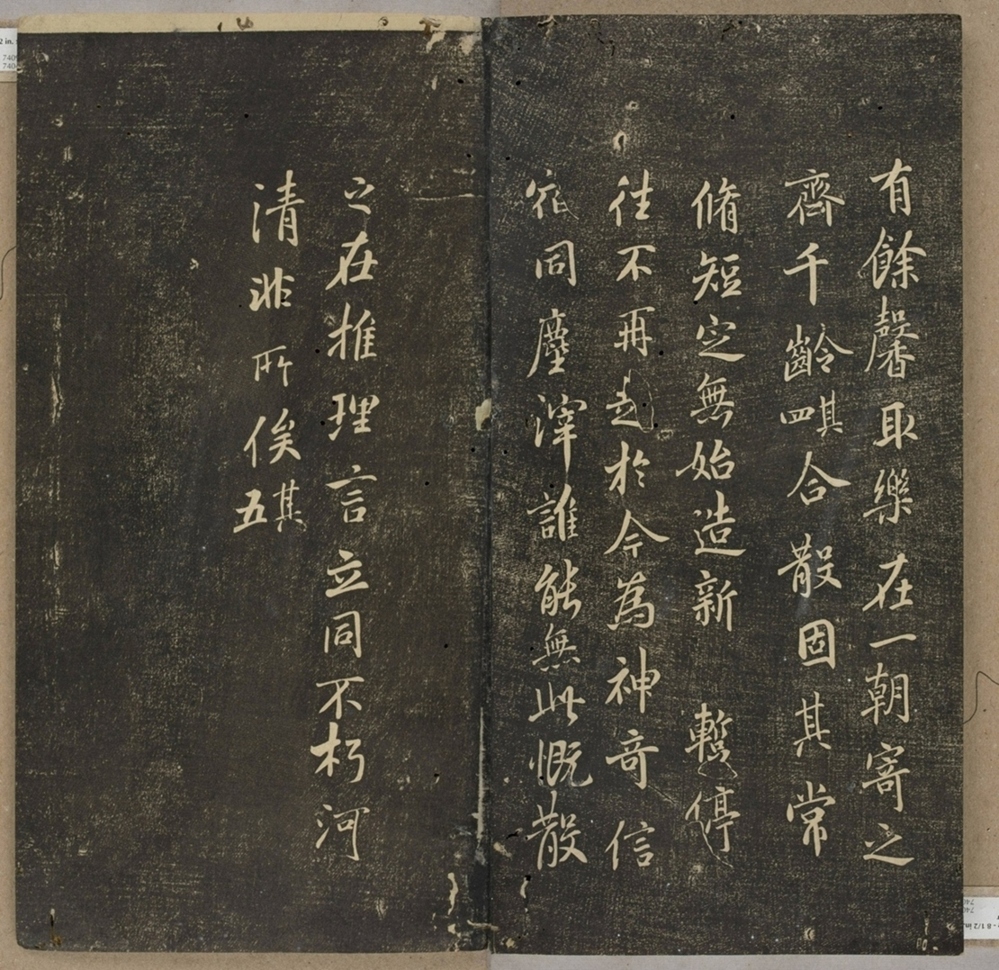 有餘馨取樂在一朝寄之
齊千齡其四合散固其常
脩短定無始造新暫停
往不再起於今為神奇信
宿同塵滓誰能無此慨散
之在推理言立同不朽河
清非所俟其五